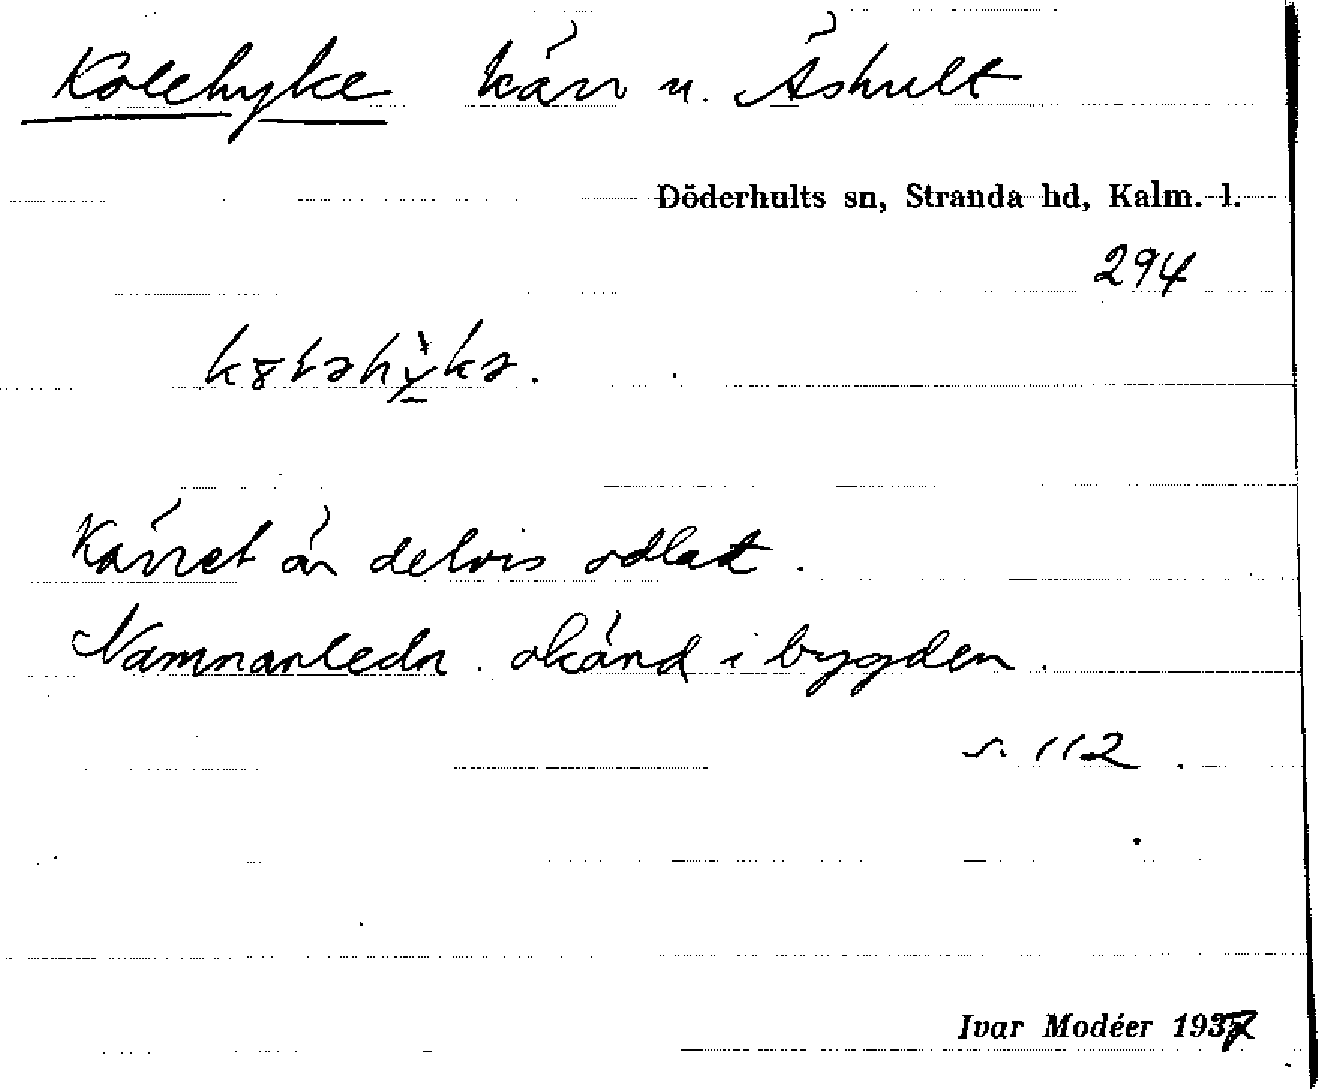 Kolehyke kärr u. Äshult
Döderhults sn, Stranda hd, Kalm. l.
294
Kärret är delvis odlat.
Namnanledn. okänd i bygden.
s. 112.
Ivar Modéer 1937